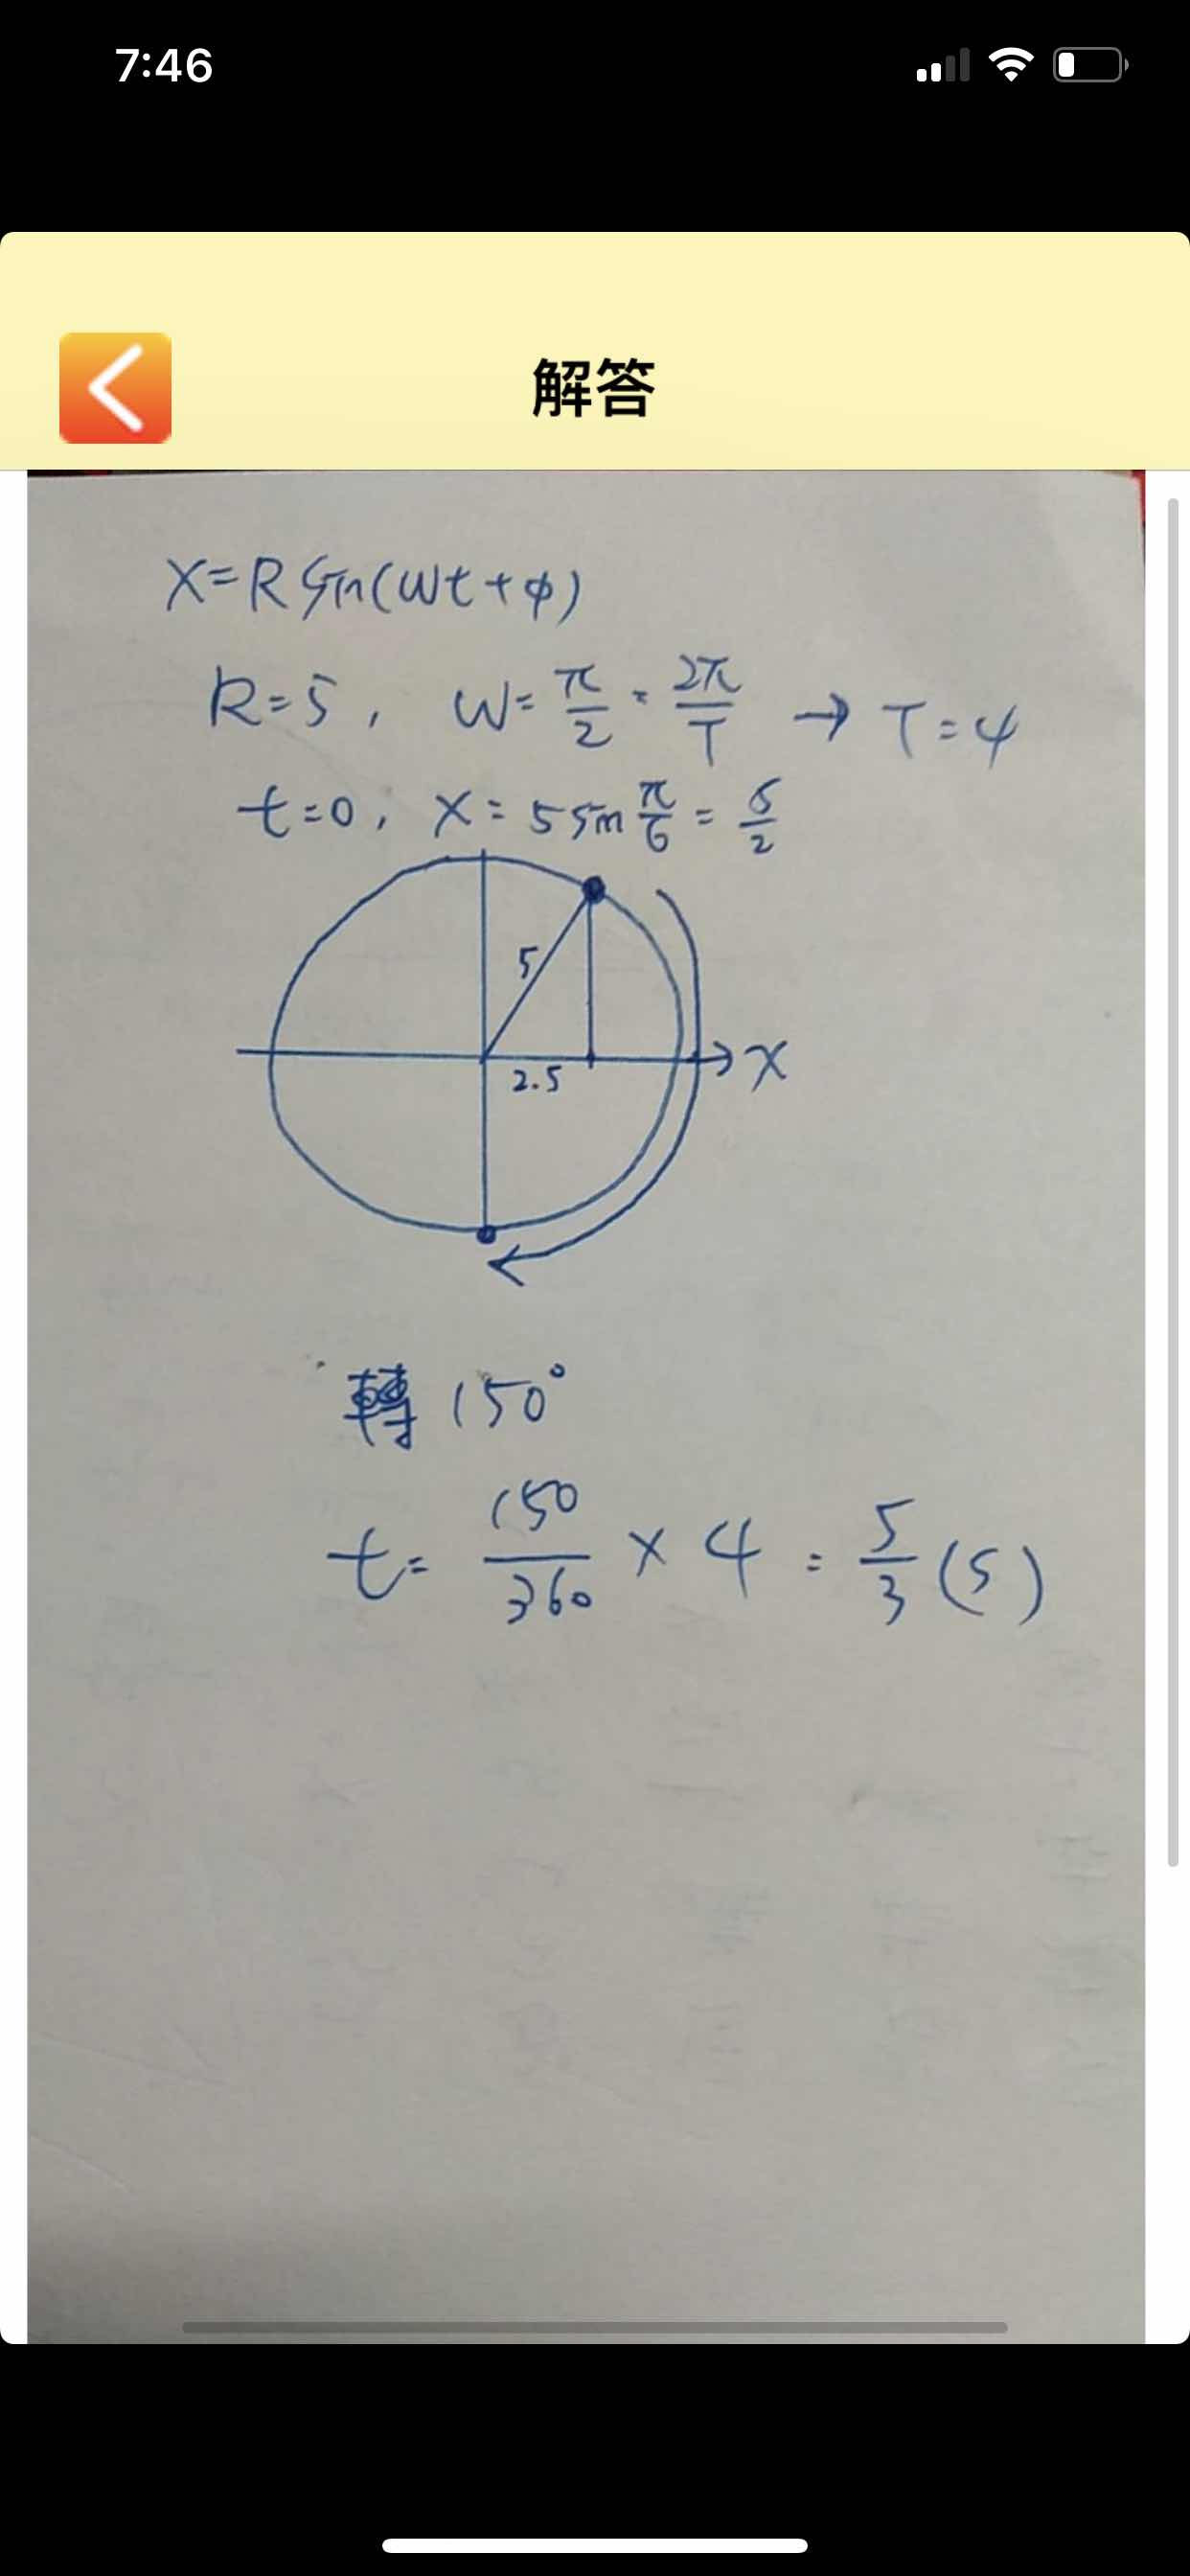 7:46
解答
X=R Sin(Wt+φ)
R=5, W=π/2=2π/T → T=4
t=0, X=5 sin π/6 = 5/2
5
2.5
X
轉 150°
t= 150/360 × 4 = 5/3 (s)